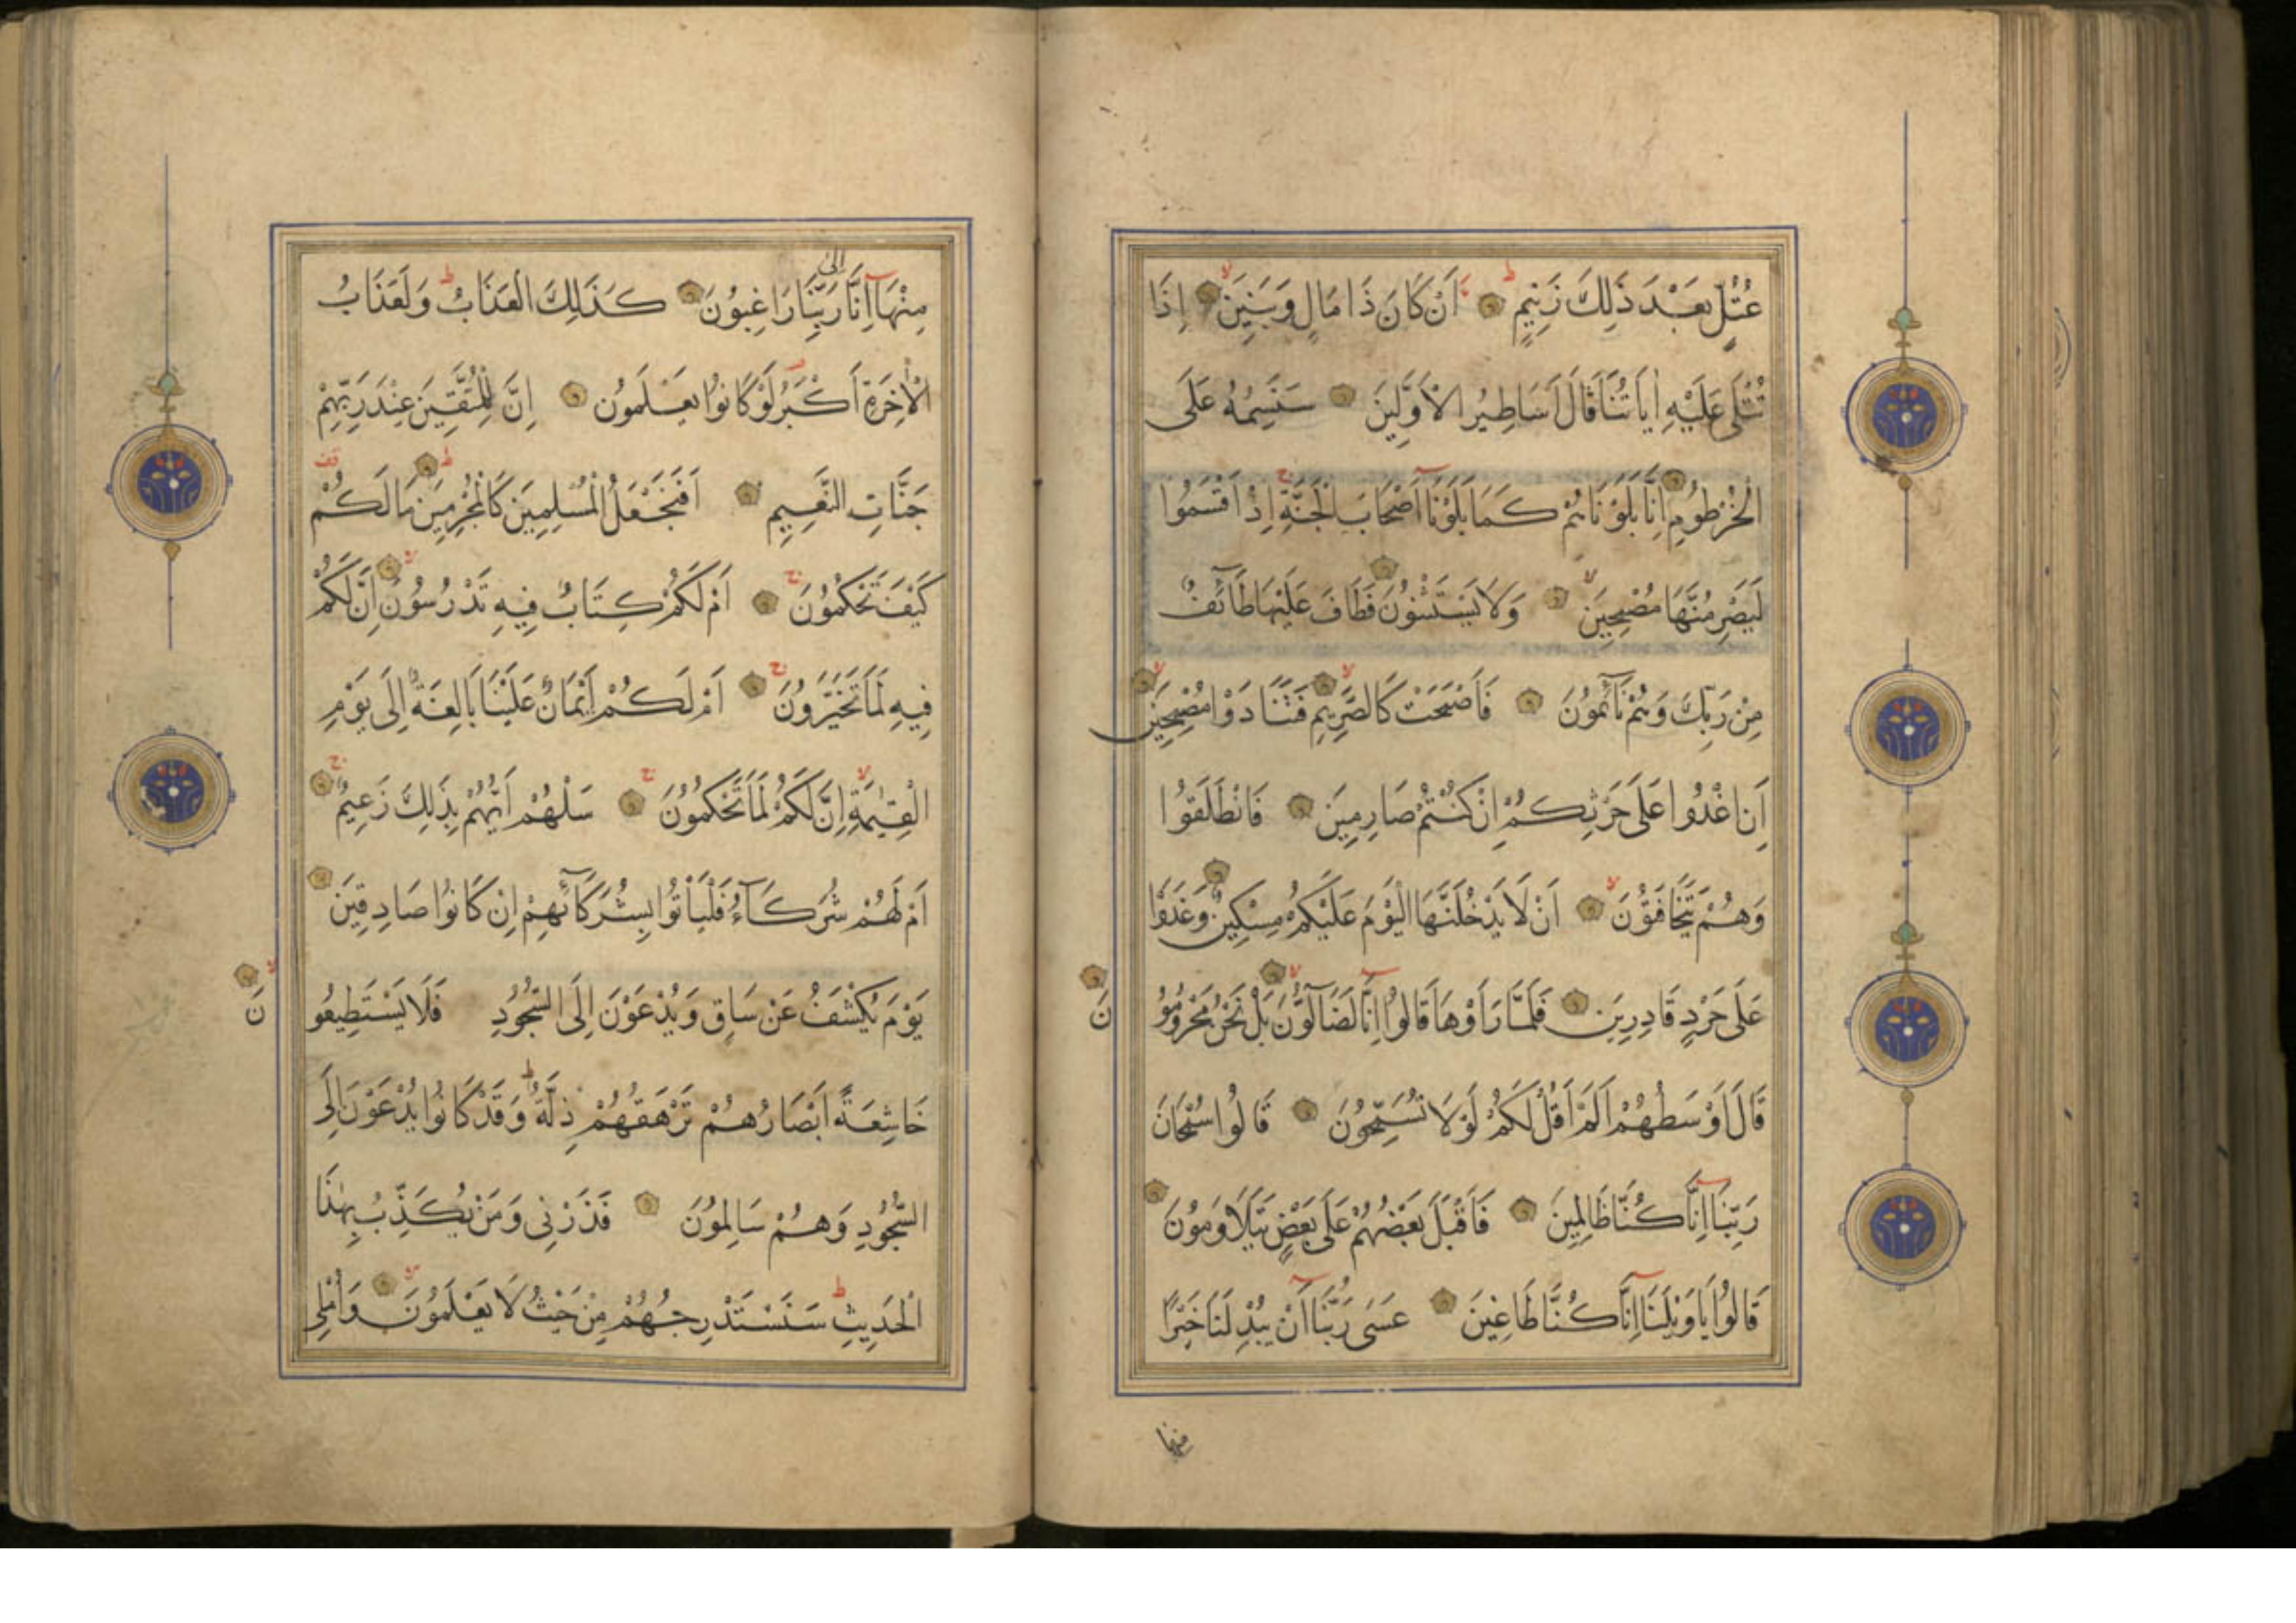 عُتُلٍّ بَعْدَ ذَلِكَ زَنِيمٍ اَنْ كَانَ ذَا مَالٍ وَبَنِينَ اِذَا
تُتْلَى عَلَيْهِ اٰيَاتُنَا قَالَ اَسَاطِيرُ الْاَوَّلِينَ سَنَسِمُهُ عَلَى
الْخُرْطُومِ اِنَّا بَلَوْنَاهُمْ كَمَا بَلَوْنَا اَصْحَابَ الْجَنَّةِ اِذْ اَقْسَمُوا
لَيَصْرِمُنَّهَا مُصْبِحِينَ وَلَا يَسْتَثْنُونَ فَطَافَ عَلَيْهَا طَآئِفٌ
مِنْ رَبِّكَ وَهُمْ نَآئِمُونَ فَاَصْبَحَتْ كَالصَّرِيمِ فَتَنَادَوْا مُصْبِحِينَ
اَنِ اغْدُوا عَلَى حَرْثِكُمْ اِنْ كُنْتُمْ صَارِمِينَ فَانْطَلَقُوا
وَهُمْ يَتَخَافَتُونَ اَنْ لَا يَدْخُلَنَّهَا الْيَوْمَ عَلَيْكُمْ مِسْكِينٌ وَغَدَوْا
عَلَى حَرْدٍ قَادِرِينَ فَلَمَّا رَاَوْهَا قَالُوا اِنَّا لَضَآلُّونَ بَلْ نَحْنُ مَحْرُومُو
نَ
قَالَ اَوْسَطُهُمْ اَلَمْ اَقُلْ لَكُمْ لَوْلَا تُسَبِّحُونَ قَالُوا سُبْحَانَ
رَبِّنَا اِنَّا كُنَّا ظَالِمِينَ فَاَقْبَلَ بَعْضُهُمْ عَلَى بَعْضٍ يَتَلَاوَمُونَ
قَالُوا يَا وَيْلَنَا اِنَّا كُنَّا طَاغِينَ عَسَى رَبُّنَا اَنْ يُبْدِلَنَا خَيْرًا
منها
مِنْهَا اِنَّا اِلَى رَبِّنَا رَاغِبُونَ كَذَلِكَ الْعَذَابُ وَلَعَذَابُ
الْاٰخِرَةِ اَكْبَرُ لَوْ كَانُوا يَعْلَمُونَ اِنَّ لِلْمُتَّقِينَ عِنْدَ رَبِّهِمْ
جَنَّاتِ النَّعِيمِ اَفَنَجْعَلُ الْمُسْلِمِينَ كَالْمُجْرِمِينَ مَالَكُمْ
كَيْفَ تَحْكُمُونَ اَمْ لَكُمْ كِتَابٌ فِيهِ تَدْرُسُونَ اِنَّ لَكُمْ
فِيهِ لَمَا تَخَيَّرُونَ اَمْ لَكُمْ اَيْمَانٌ عَلَيْنَا بَالِغَةٌ اِلَى يَوْمِ
الْقِيٰمَةِ اِنَّ لَكُمْ لَمَا تَحْكُمُونَ سَلْهُمْ اَيُّهُمْ بِذَلِكَ زَعِيمٌ
اَمْ لَهُمْ شُرَكَآءُ فَلْيَأْتُوا بِشُرَكَآئِهِمْ اِنْ كَانُوا صَادِقِينَ
يَوْمَ يُكْشَفُ عَنْ سَاقٍ وَيُدْعَوْنَ اِلَى السُّجُودِ فَلَا يَسْتَطِيعُو
نَ
خَاشِعَةً اَبْصَارُهُمْ تَرْهَقُهُمْ ذِلَّةٌ وَقَدْ كَانُوا يُدْعَوْنَ اِلَى
السُّجُودِ وَهُمْ سَالِمُونَ فَذَرْنِى وَمَنْ يُكَذِّبُ بِهٰذَا
الْحَدِيثِ سَنَسْتَدْرِجُهُمْ مِنْ حَيْثُ لَا يَعْلَمُونَ وَاُمْلِى